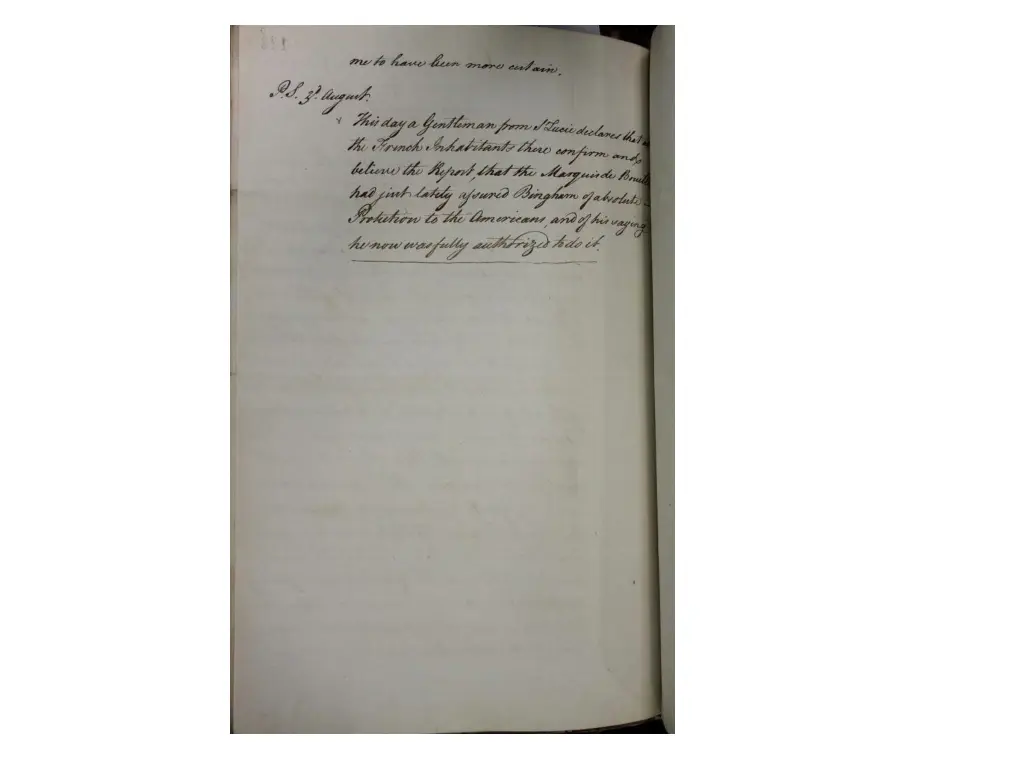 me to have been more certain.
P.S. 3d. August.
x This day a Gentleman from St Lucie declares that
the French Inhabitants there confirm and
believe the Report, that the Marquis de Bouille
had just lately assured Bingham of absolute
Protection to the Americans, and of his saying
he now was fully authorized to do it.